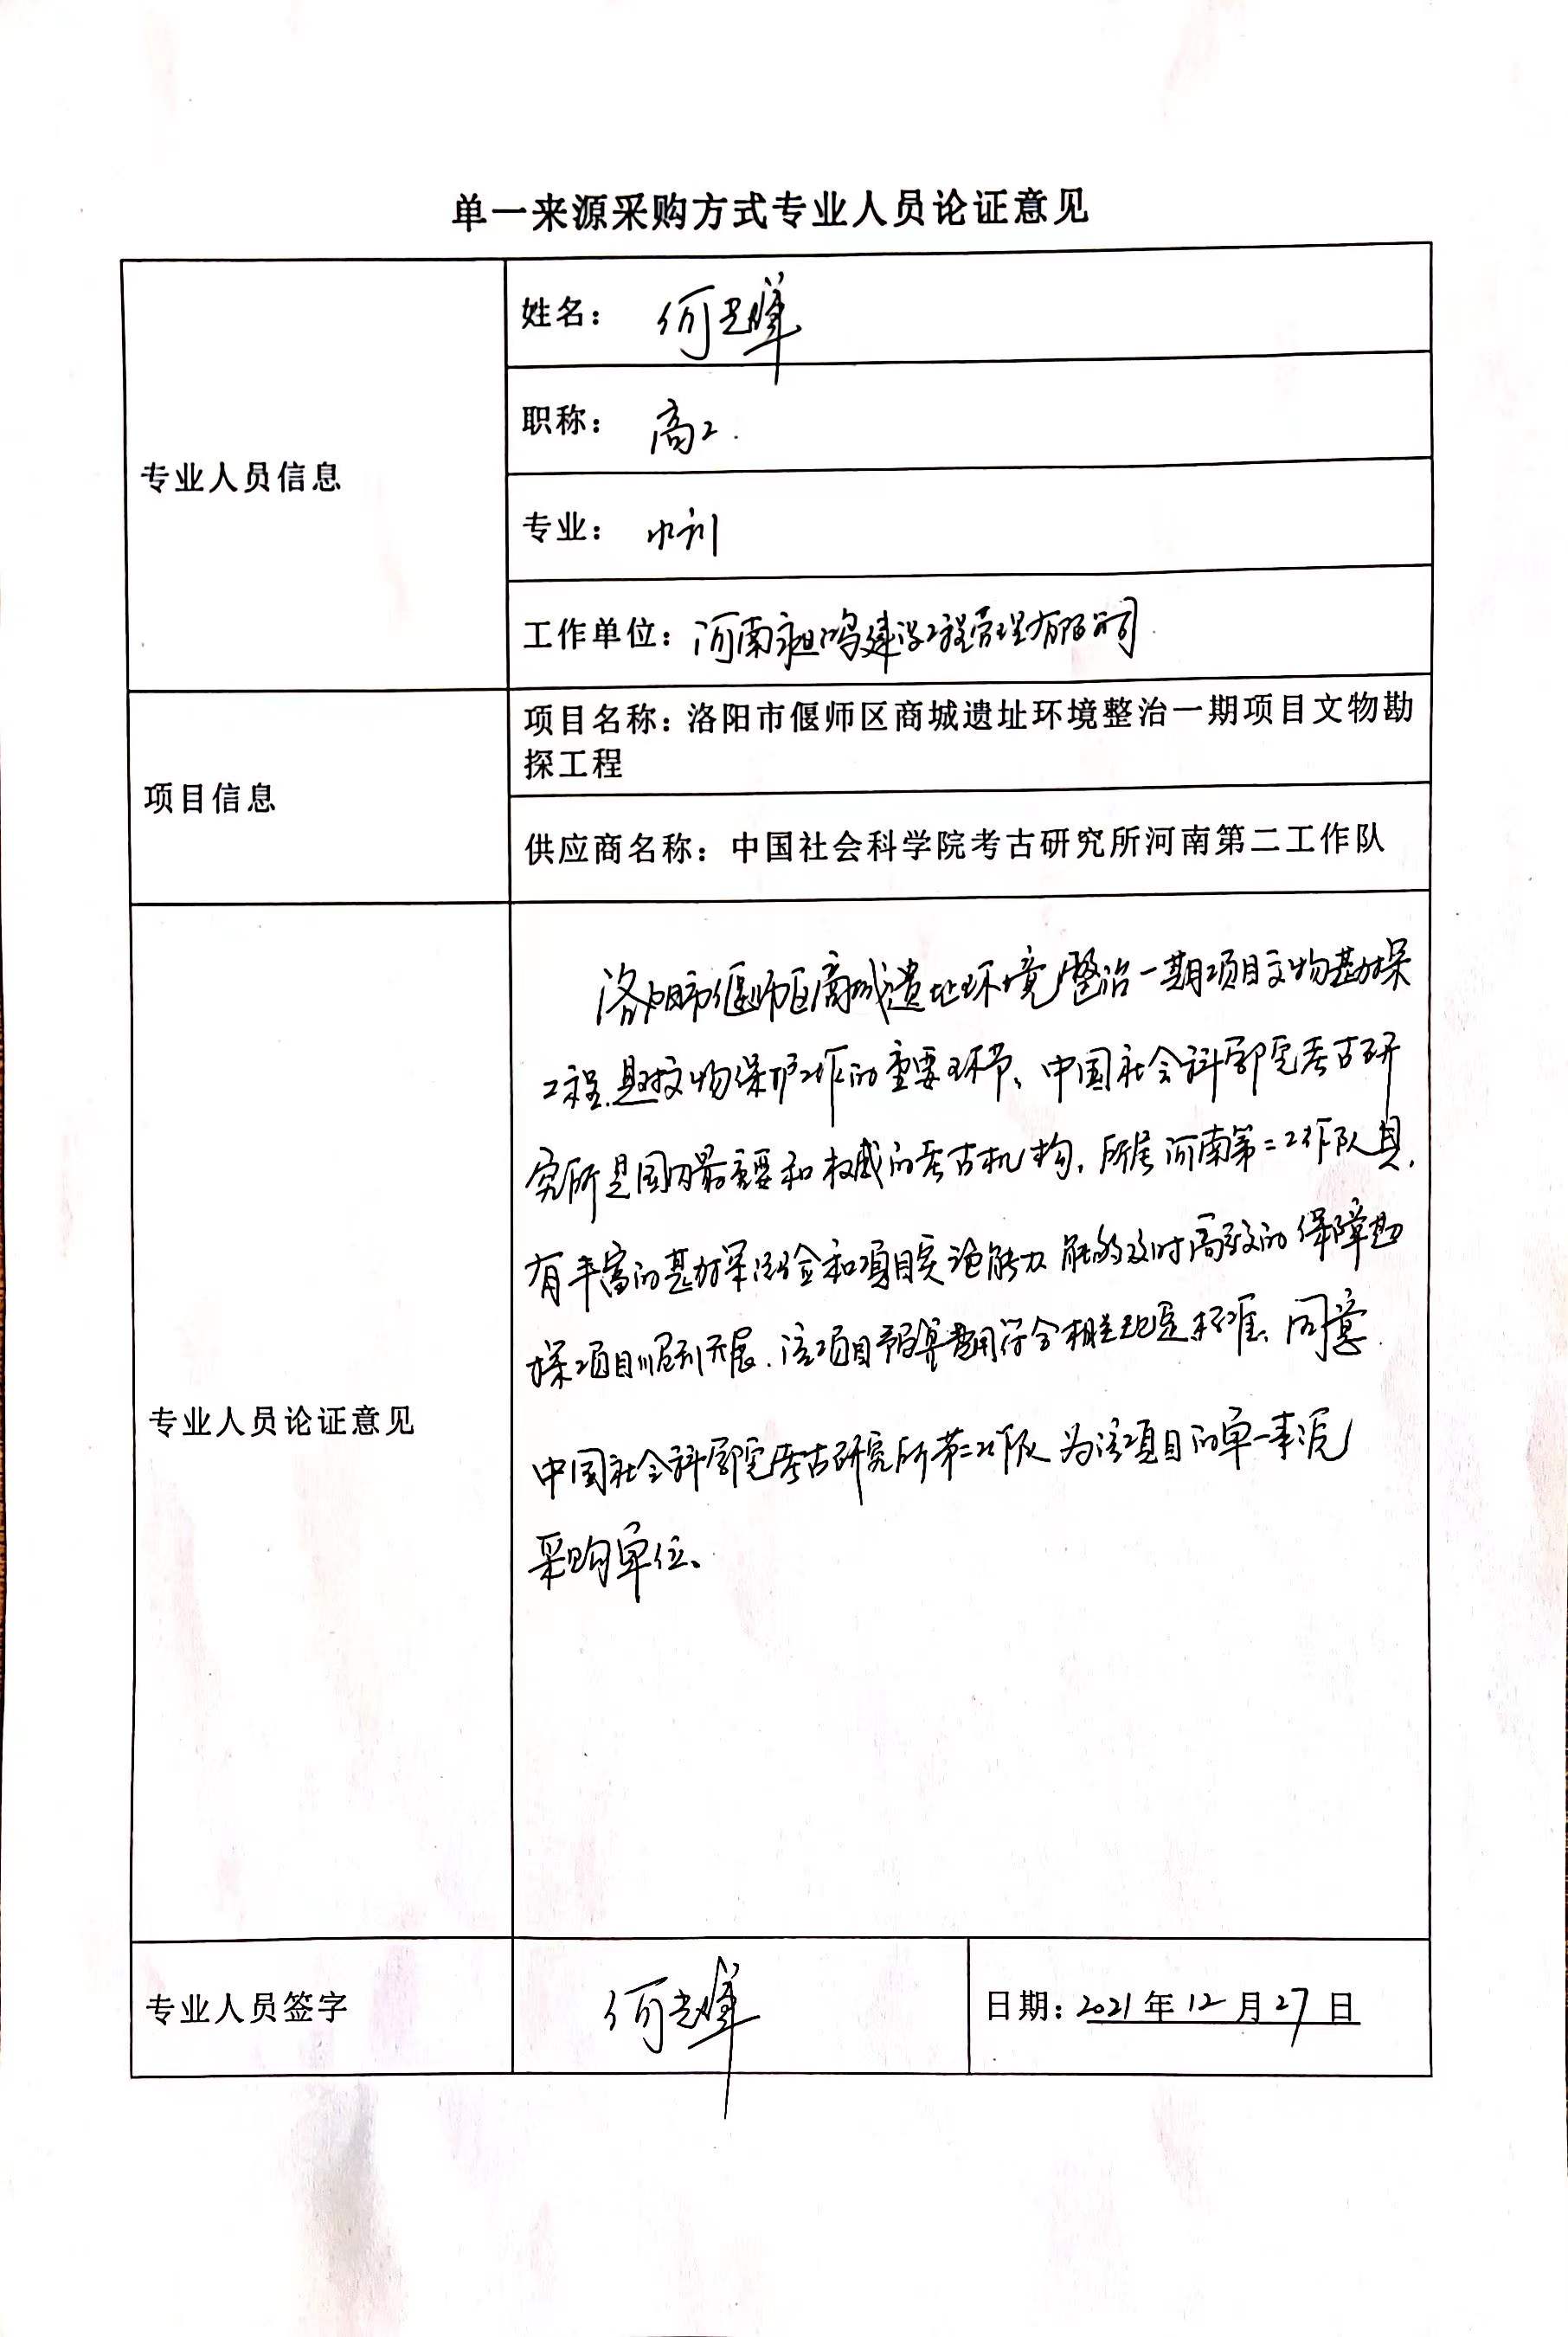 单一来源采购方式专业人员论证意见
专业人员信息
姓名：何
职称：高工.
专业：
工作单位：河南永鸣建设工程管理有限公司.
项目信息
项目名称：洛阳市偃师区商城遗址环境整治一期项目文物勘
探工程
供应商名称：中国社会科学院考古研究所河南第二工作队
专业人员论证意见
洛阳市偃师区商城遗址环境整治一期项目文物勘探
工程是文物保护工作的重要环节、中国社会科学院考古研
究所是国内最重要和权威的考古机构，所属河南第二工作队具
有丰富的勘探经验和项目实施能力 能够及时高效的保障勘
探项目顺利开展.该项目预算费用符合相关规定标准、同意
中国社会科学院考古研究所第二工作队为该项目的单一来源
采购单位。
专业人员签字
何
日期：2021年12月27日